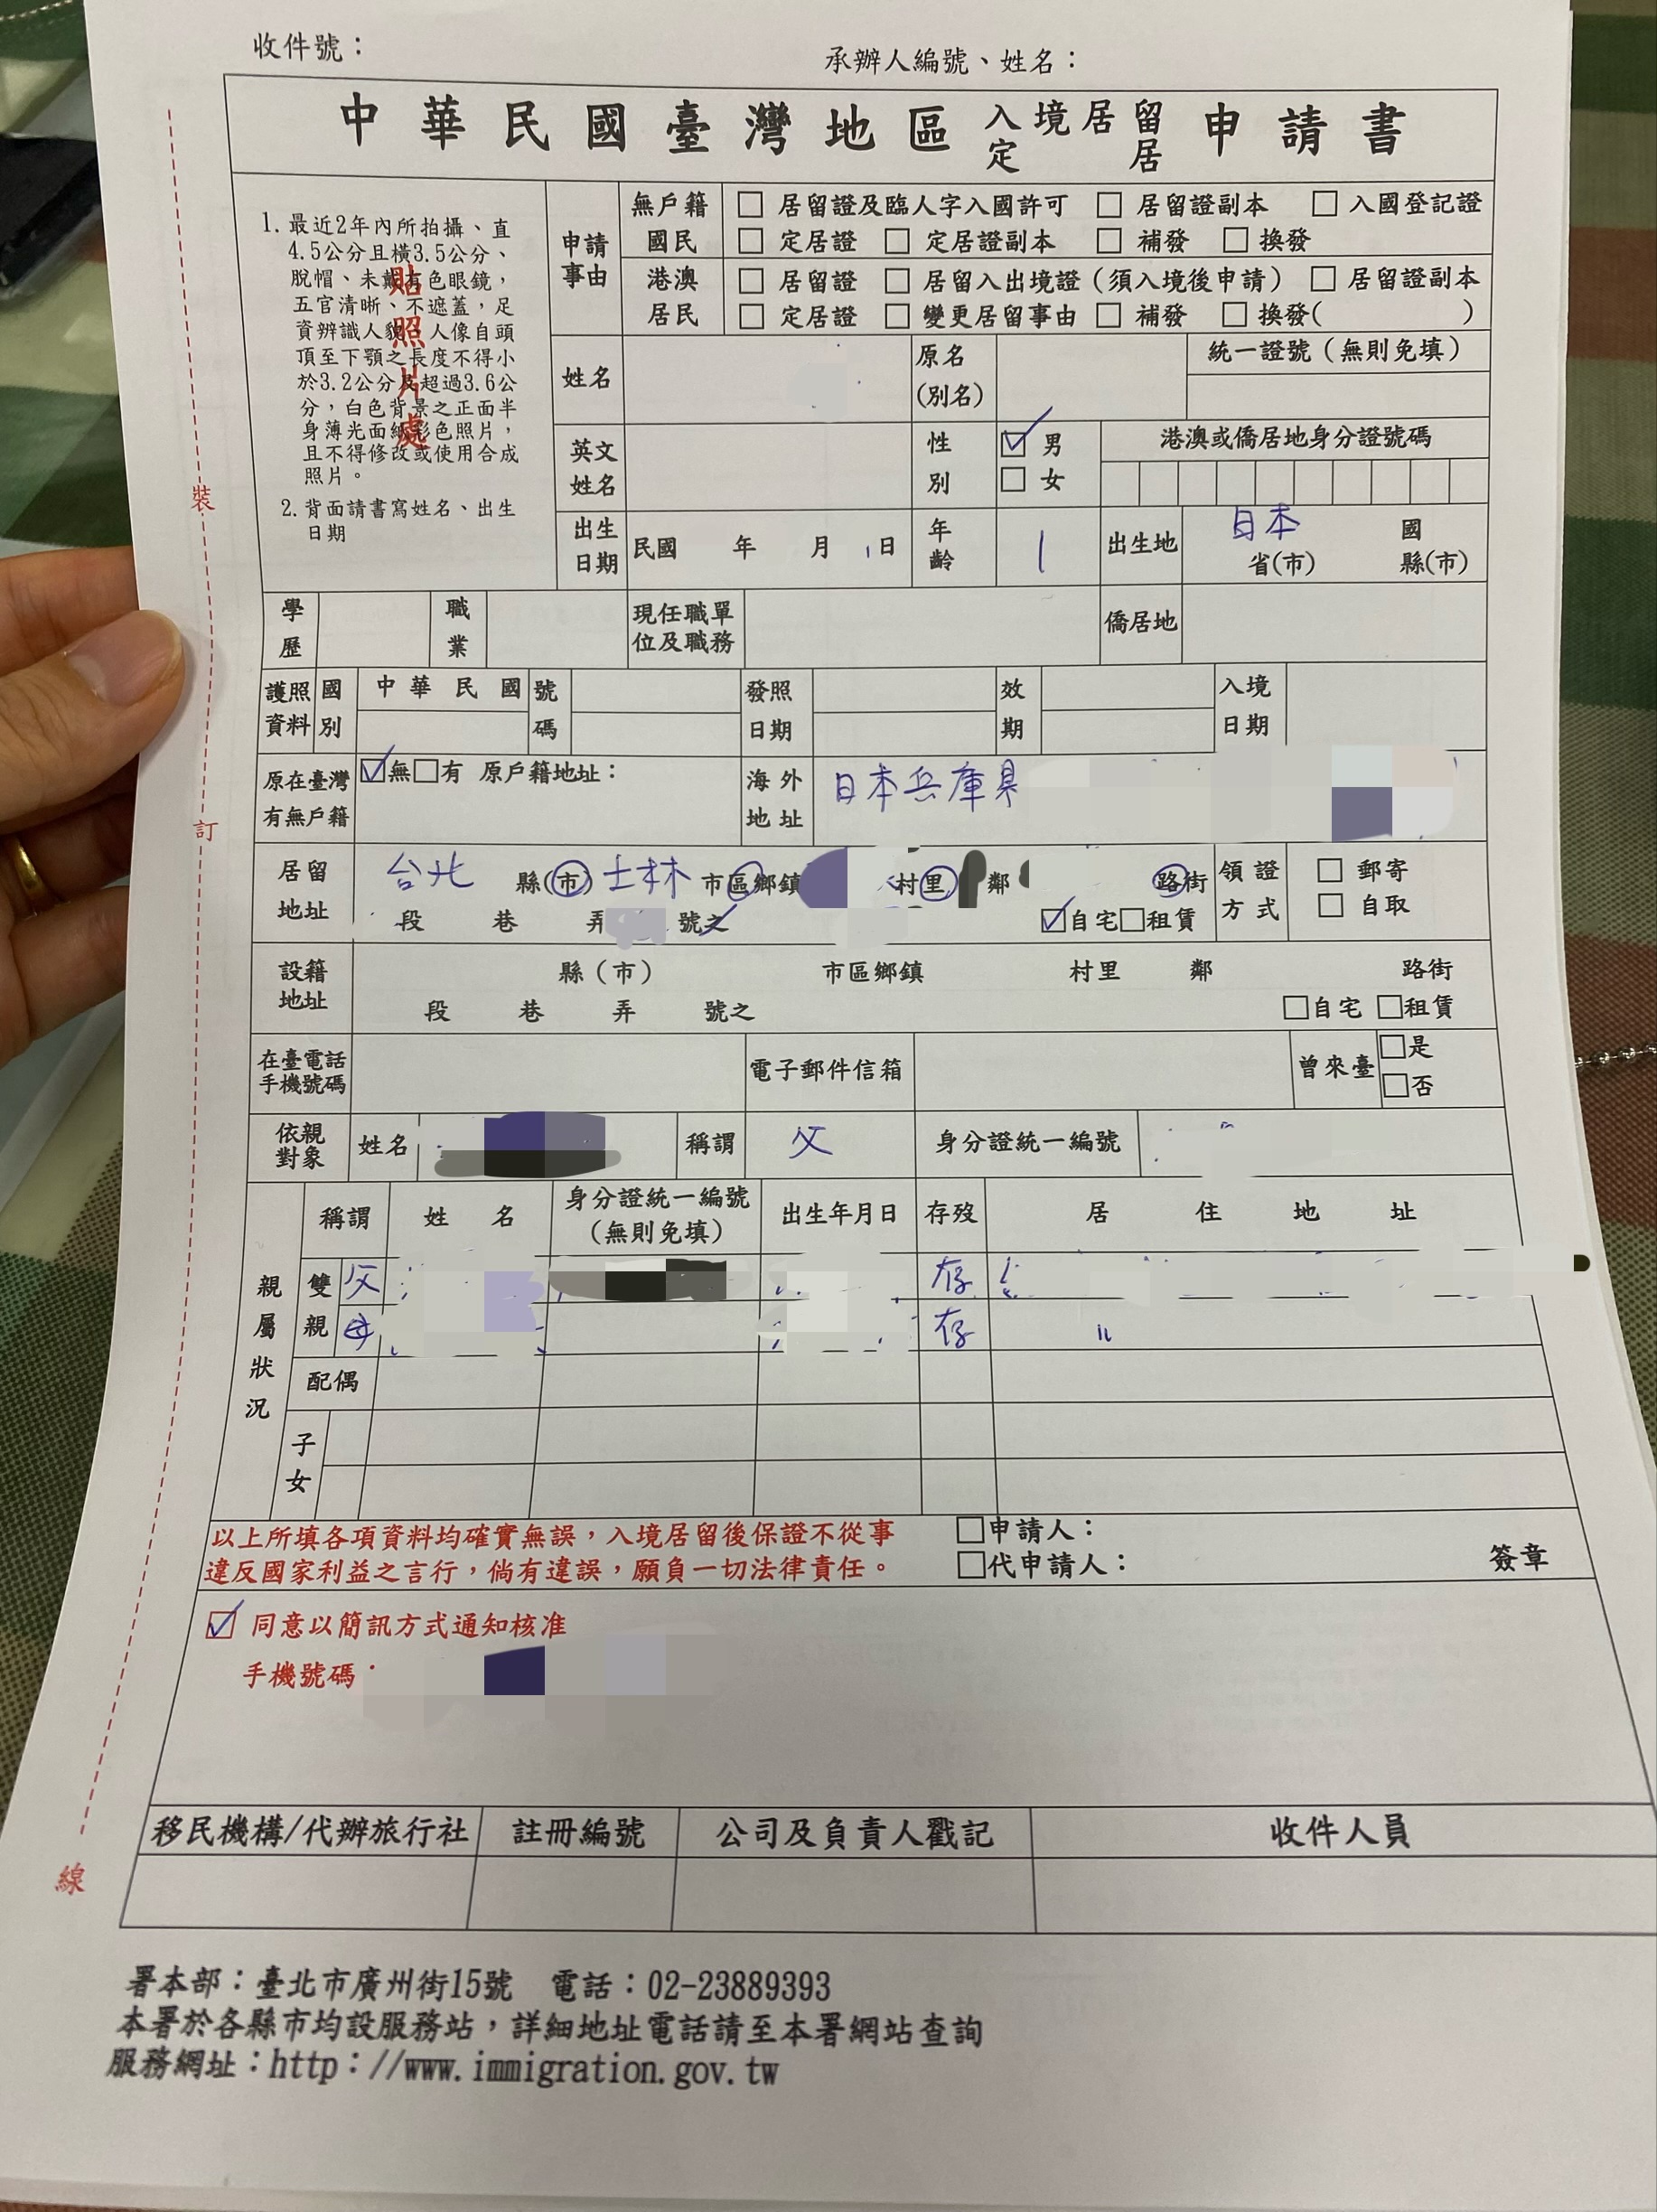 收件號：
承辦人編號、姓名：
中華民國臺灣地區入境居留定居申請書
1. 最近2年內所拍攝、直
4.5公分且橫3.5公分、
脫帽、未戴有色眼鏡，
五官清晰、不遮蓋，足
資辨識人貌，人像自頭
頂至下顎之長度不得小
於3.2公分及超過3.6公
分，白色背景之正面半
身薄光面紙彩色照片，
且不得修改或使用合成
照片。
2. 背面請書寫姓名、出生
日期
貼照片處
申請事由
無戶籍國民
□ 居留證及臨人字入國許可 □ 居留證副本 □ 入國登記證
□ 定居證 □ 定居證副本 □ 補發 □ 換發
港澳居民
□ 居留證 □ 居留入出境證（須入境後申請） □ 居留證副本
□ 定居證 □ 變更居留事由 □ 補發 □ 換發( )
姓名 原名(別名) 統一證號（無則免填）
英文姓名 性別 ☑ 男 □ 女 港澳或僑居地身分證號碼
出生日期 民國 年 月 日 年齡 1 出生地 日本 國 省(市) 縣(市)
學歷 職業 現任職單位及職務 僑居地
護照資料 國別 中華民國 號碼 發照日期 效期 入境日期
原在臺灣有無戶籍 ☑無□有 原戶籍地址： 海外地址 日本兵庫県
居留地址 台北 縣（市）士林 市區鄉鎮 村里 鄰 路街 領證方式 □ 郵寄 □ 自取
段 巷 弄 號之 ☑自宅□租賃
設籍地址 縣（市） 市區鄉鎮 村里 鄰 路街
段 巷 弄 號之 □自宅 □租賃
在臺電話手機號碼 電子郵件信箱 曾來臺 □是 □否
依親對象 姓名 稱謂 父 身分證統一編號
親屬狀況 稱謂 姓名 身分證統一編號（無則免填） 出生年月日 存歿 居住地址
雙親 父 存
母 存 〃
配偶
子女
以上所填各項資料均確實無誤，入境居留後保證不從事
違反國家利益之言行，倘有違誤，願負一切法律責任。
□申請人：
□代申請人： 簽章
☑ 同意以簡訊方式通知核准
手機號碼
移民機構/代辦旅行社 註冊編號 公司及負責人戳記 收件人員
裝
訂
線
署本部：臺北市廣州街15號 電話：02-23889393
本署於各縣市均設服務站，詳細地址電話請至本署網站查詢
服務網址：http：//www.immigration.gov.tw